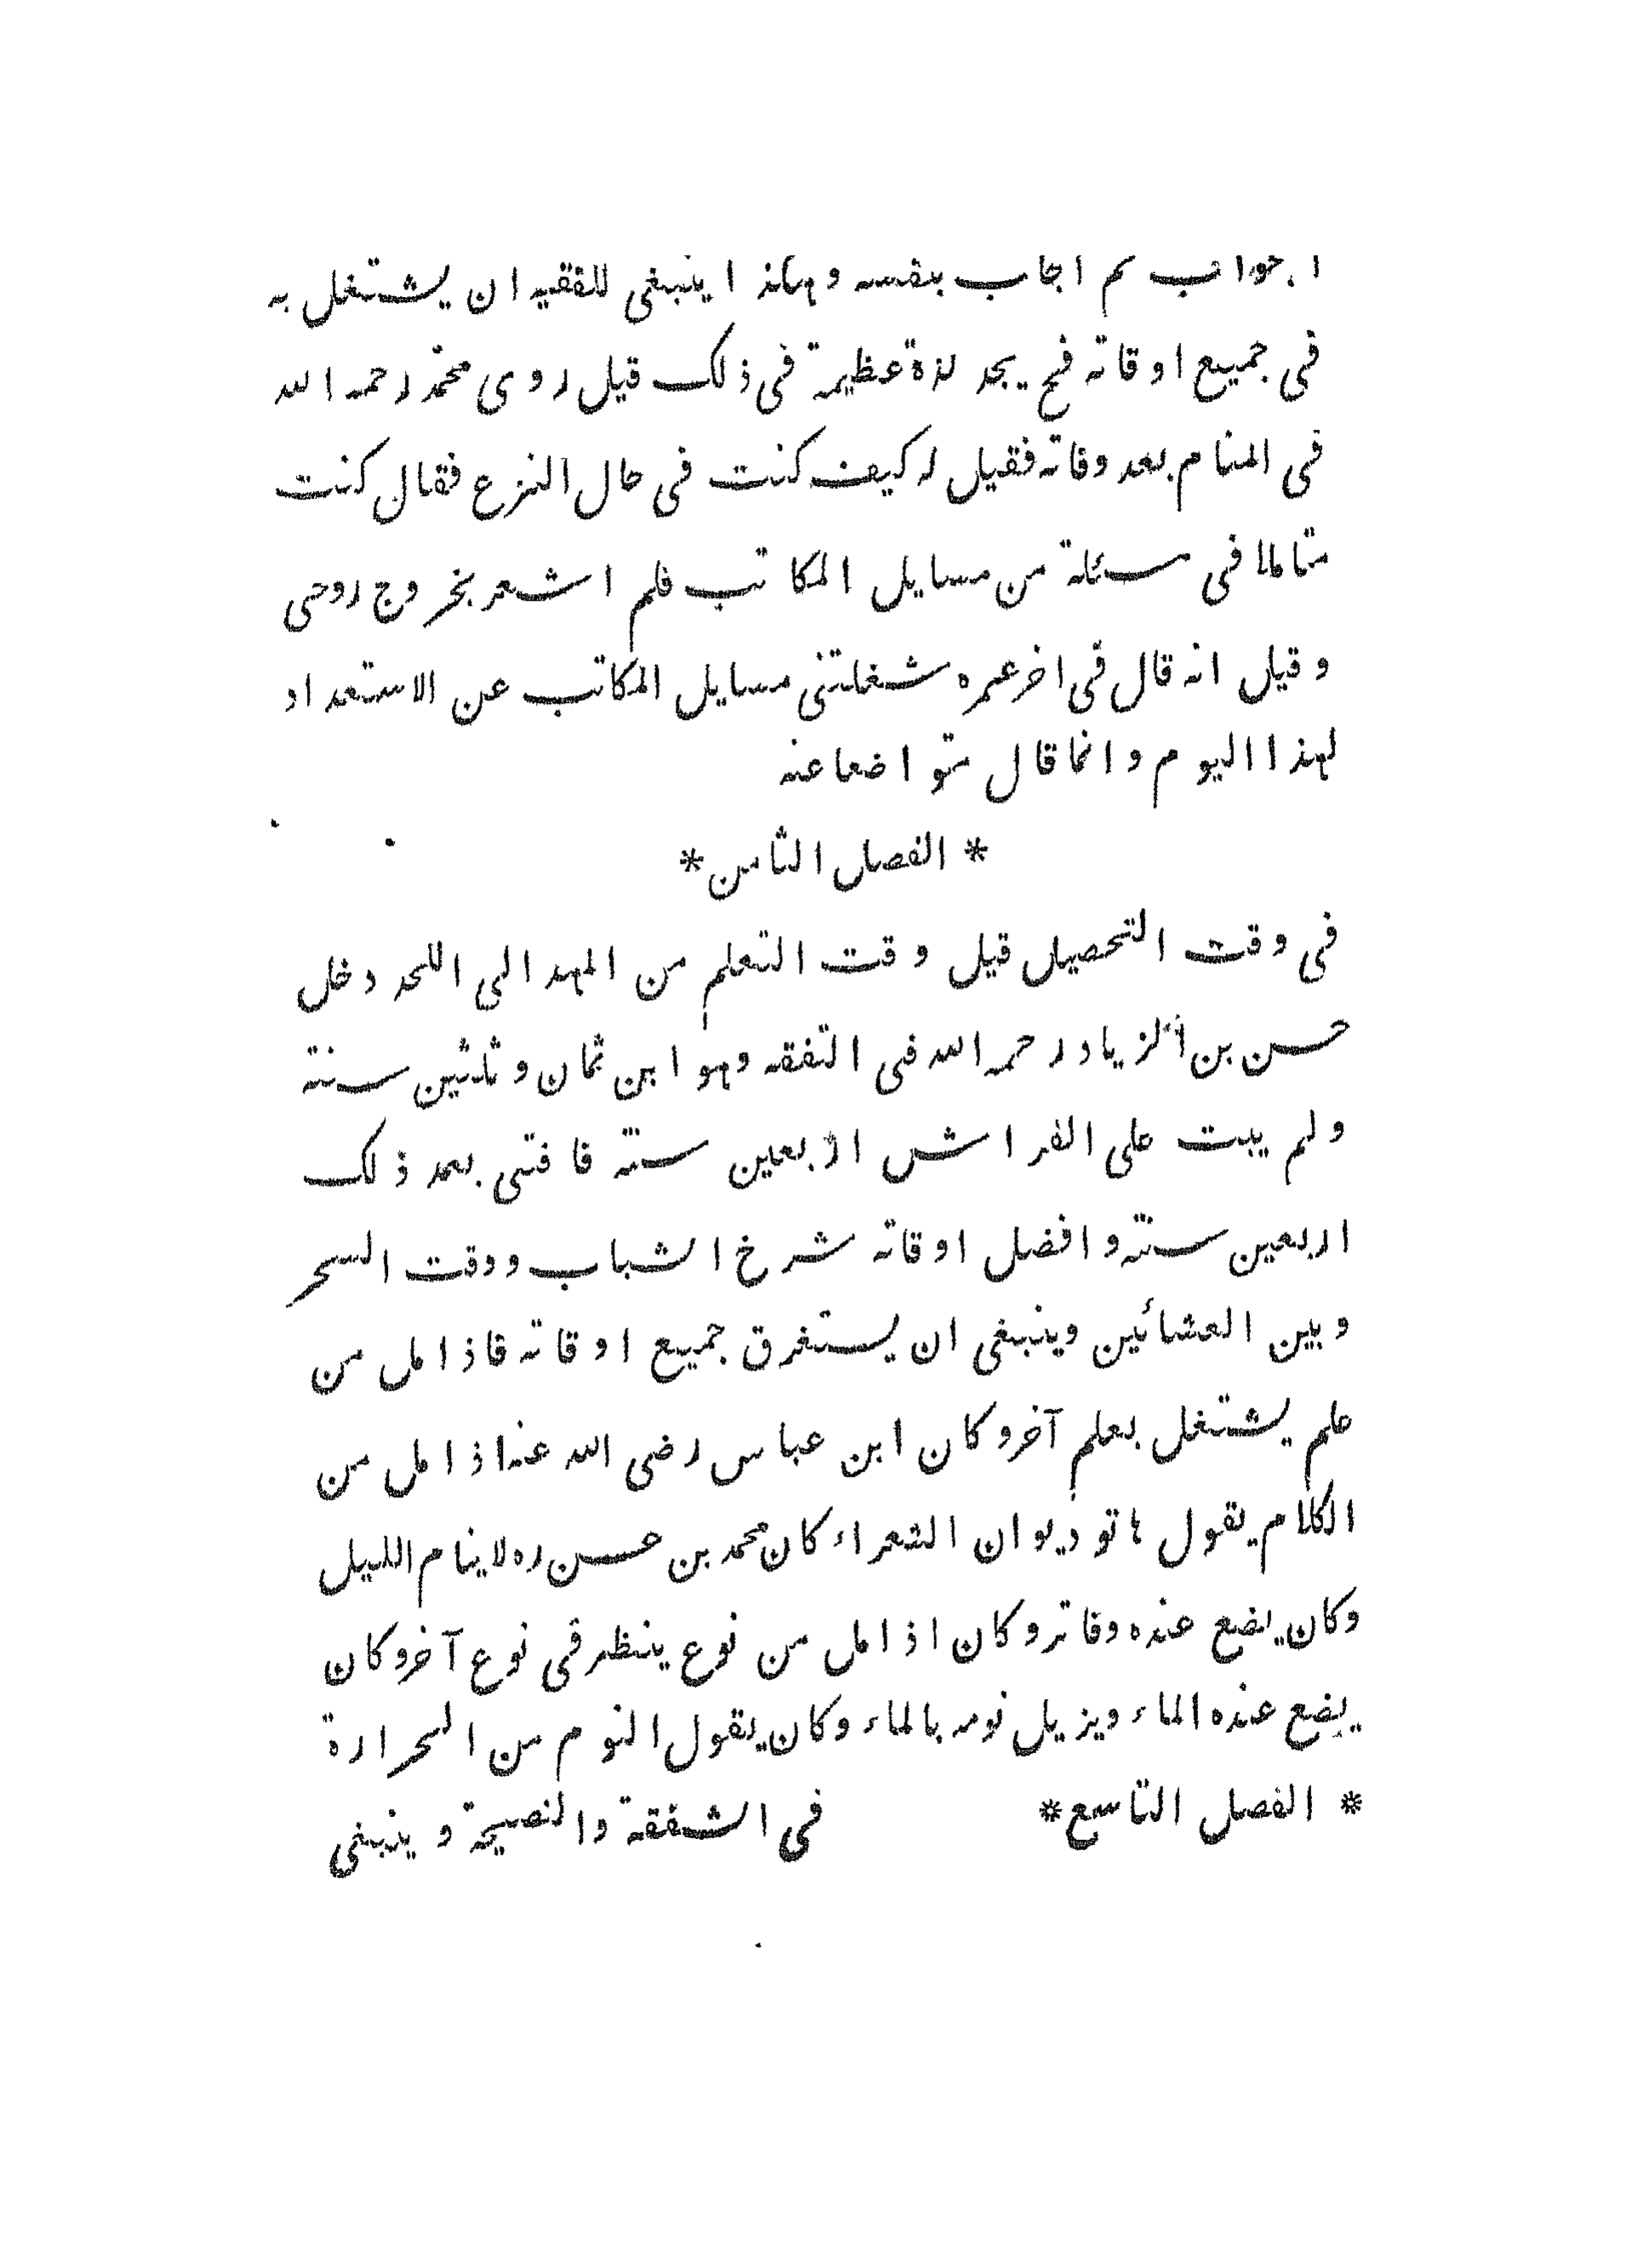 الجواب ثم اجاب بنفسه وهكذا ينبغى للفقيه ان يشتغل به
فى جميع اوقاته فح يجد لذة عظيمة فى ذلك قيل روى محمد رحمه الله
فى المنام بعد وفاته فقيل له كيف كنت فى حال النزع فقال كنت
متاملا فى مسئلة من مسايل المكاتب فلم اشعر بخروج روحى
وقيل انه قال فى اخر عمره شغلتنى مسايل المكاتب عن الاستعداد
لهذا اليوم وانما قال تواضعا عنه
* الفصل الثامن *
فى وقت التحصيل قيل وقت التعلم من المهد الى اللحد دخل
حسن بن الزياد رحمه الله فى التفقه وهو ابن ثمان وثلثين سنة
ولم يبت على الفراش اربعين سنة فافتى بعد ذلك
اربعين سنة وافضل اوقاته شرخ الشباب ووقت السحر
وبين العشائين وينبغى ان يستغرق جميع اوقاته فاذا مل من
علم يشتغل بعلم آخر وكان ابن عباس رضى الله عنه اذا مل من
الكلام يقول هاتو ديوان الشعراء كان محمد بن حسن ره لا ينام الليل
وكان يضع عنده دفاتر وكان اذا مل من نوع ينظر فى نوع آخر وكان
يضع عنده الماء ويزيل نومه بالماء وكان يقول النوم من الحرارة
* الفصل التاسع * فى الشفقة والنصيحة وينبغى